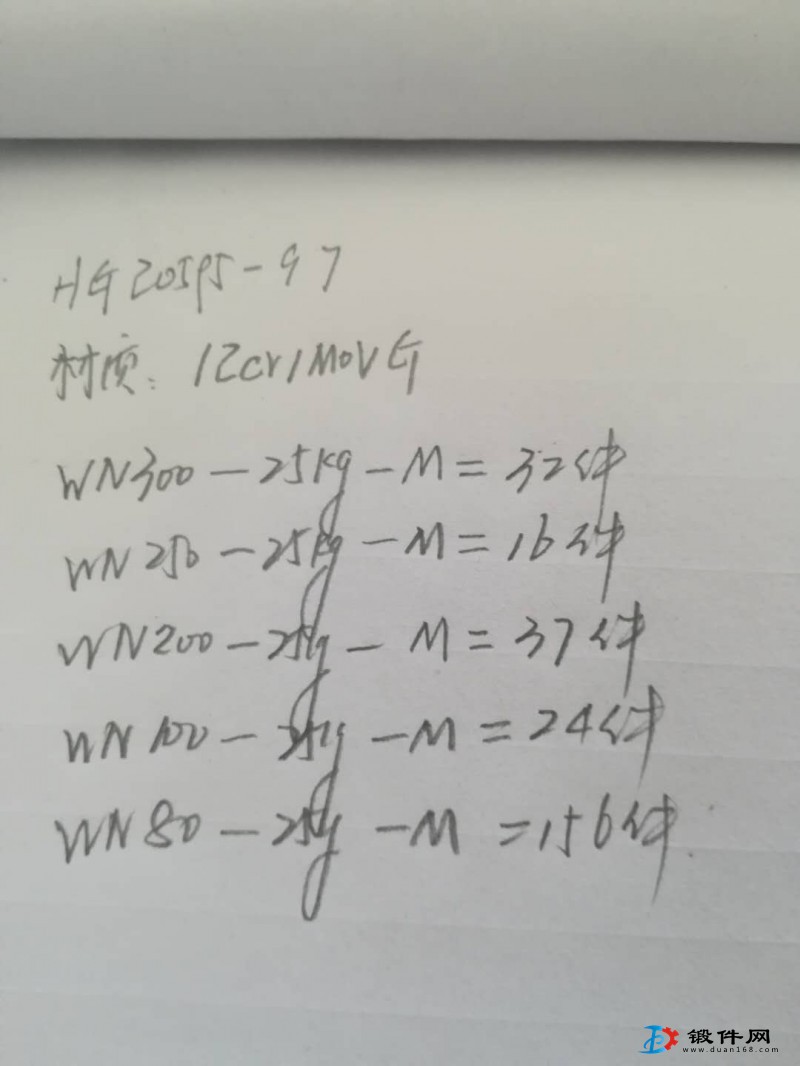 HG20595-97
材质：12cr1MoVG
WN300-25kg-M=32件
WN250-25kg-M=16件
WN200-25kg-M=37件
WN100-25kg-M=24件
WN80-25kg-M=156件
锻件网
www.duan168.com